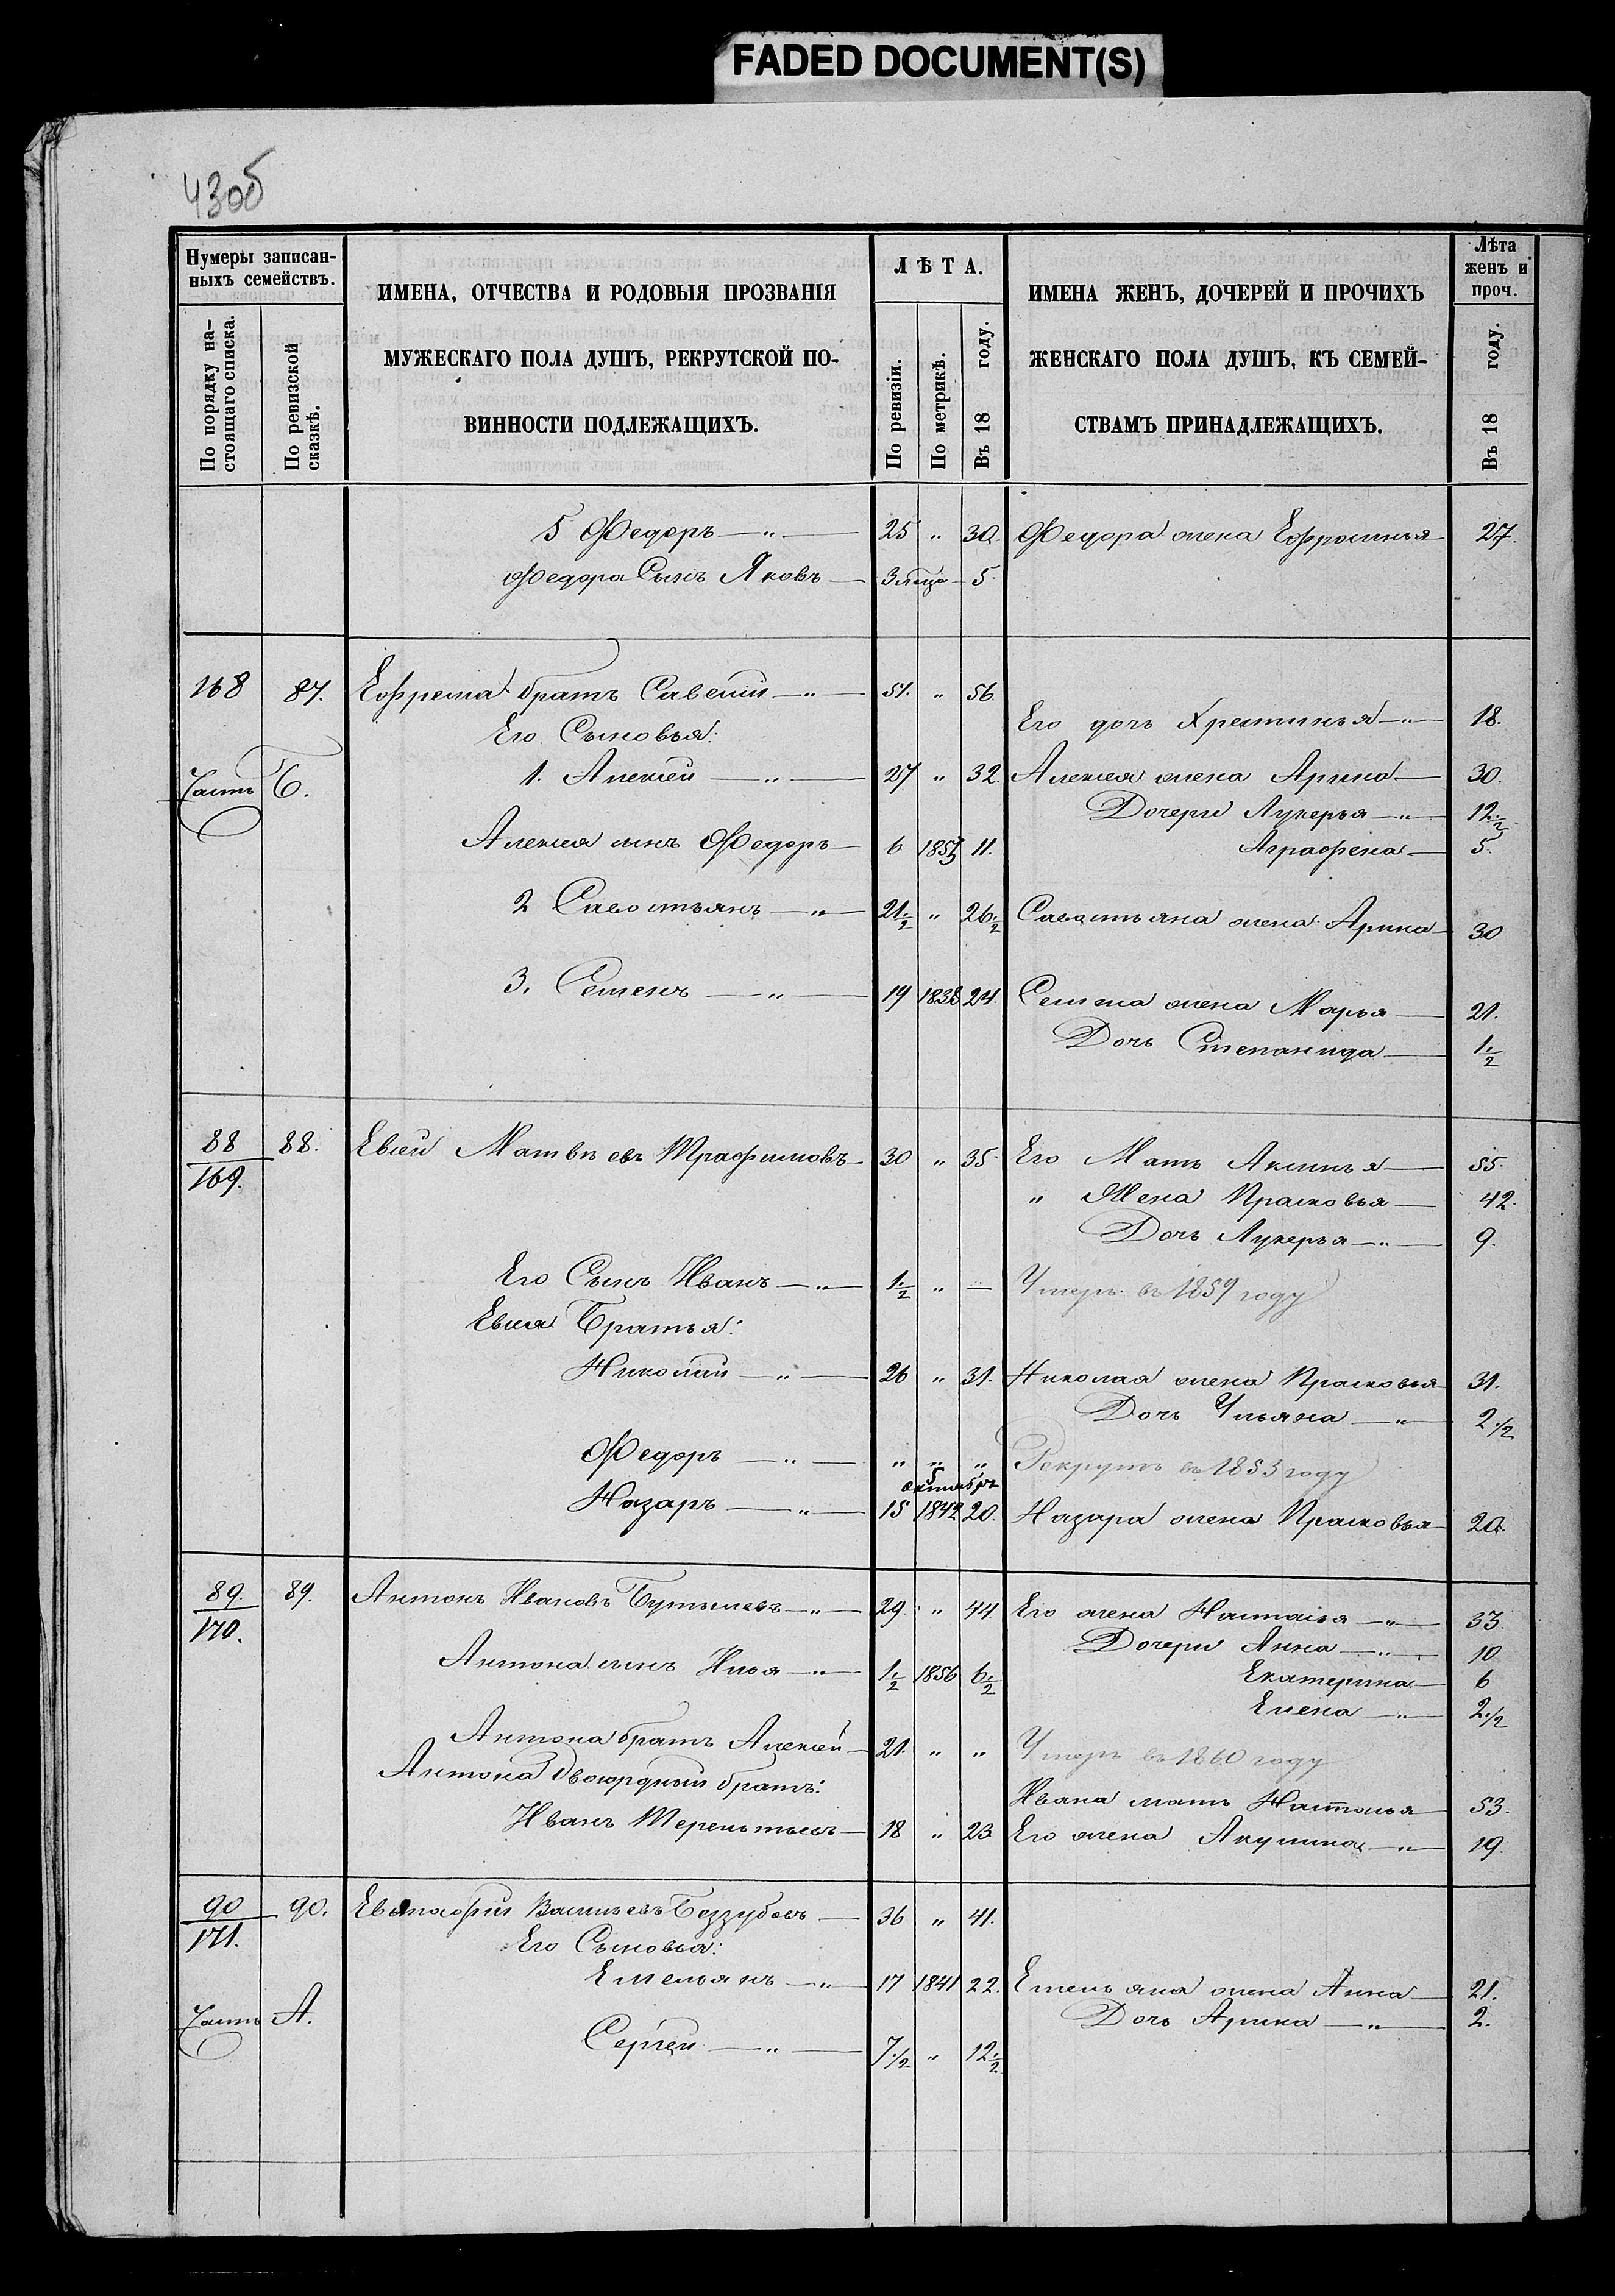 FADED DOCUMENT(S)
43об
Нумеры записан-
ныхъ семействъ.
По порядку на-
стоящаго списка.
По ревизской
сказкѣ.
ИМЕНА, ОТЧЕСТВА И РОДОВЫЯ ПРОЗВАНІЯ
МУЖЕСКАГО ПОЛА ДУШЪ, РЕКРУТСКОЙ ПО-
ВИННОСТИ ПОДЛЕЖАЩИХЪ.
ЛѢТА.
По ревизіи.
По метрикѣ.
Въ 18 году.
ИМЕНА ЖЕНЪ, ДОЧЕРЕЙ И ПРОЧИХЪ
ЖЕНСКАГО ПОЛА ДУШЪ, КЪ СЕМЕЙ-
СТВАМЪ ПРИНАДЛЕЖАЩИХЪ.
Лѣта
женъ и
проч.
Въ 18 году.
5 Федоръ — „ — 25 „ 30. Федора жена Ефросинья 27.
Федора Сынъ Яковъ — 5.
168 87. Ефрема братъ Савелий — „ — 51. „ 56
Его дочь Хрестинья — „ — 18.
Его Сыновья:
Часть Б. 1. Алексей — „ — 27 „ 32. Алексея жена Арина — 30.
Дочери Лукерья — „ — 12.½
Алексея сынъ Федоръ — 6 11. Аграфена — 5.
2 Савостьянъ — „ — 21.½ „ 26.½ Савостьяна жена Арина — 30
3. Семенъ — „ — 19 1838 24. Семена жена Марья — 21.
Дочь Степанида — 1.½
88 88. Евсей Матвѣевъ Трафимовъ — 30 „ 35. Его Мать Аксинья — 55.
169.
„ Жена Прасковья — 42.
Дочь Лукерья — „ — 9.
Его Сынъ Иванъ — „ — 1.½ „ — Умеръ въ 1859 году
Евсея Братья:
Николай — „ — 26 „ 31. Николая жена Прасковья 31.
Дочь Ульяна — „ 2.½
Федоръ — „ — „ „ „ Рекрутъ въ 1853 году
5 октября
Назаръ — „ — 15 1842 20. Назара жена Прасковья 20.
89. 89. Антонъ Ивановъ — „ — 29. „ 44. Его жена Наталья — „ — 33.
170.
Дочери Анна — „ — 10
Антона сынъ Илья — „ — 1.½ 1856 6.½ Екатерина — 6
Елена — „ — 2.½
Антона братъ Алексей — 21. „ „ Умеръ въ 1860 году
Антона двоюрдный братъ:
Ивана мать Наталья 53.
Иванъ Терентьевъ — 18 „ 23 Его жена Акулина — „ — 19.
90 90. Евстафий Васильевъ Беззубовъ — 36 „ 41.
171.
Его Сыновья:
Емельянъ — „ — 17 1841 22. Емельяна жена Анна — 21.
Часть А. Дочь Арина — „ — 2.
Сергей — „ — 7.½ „ 12.½